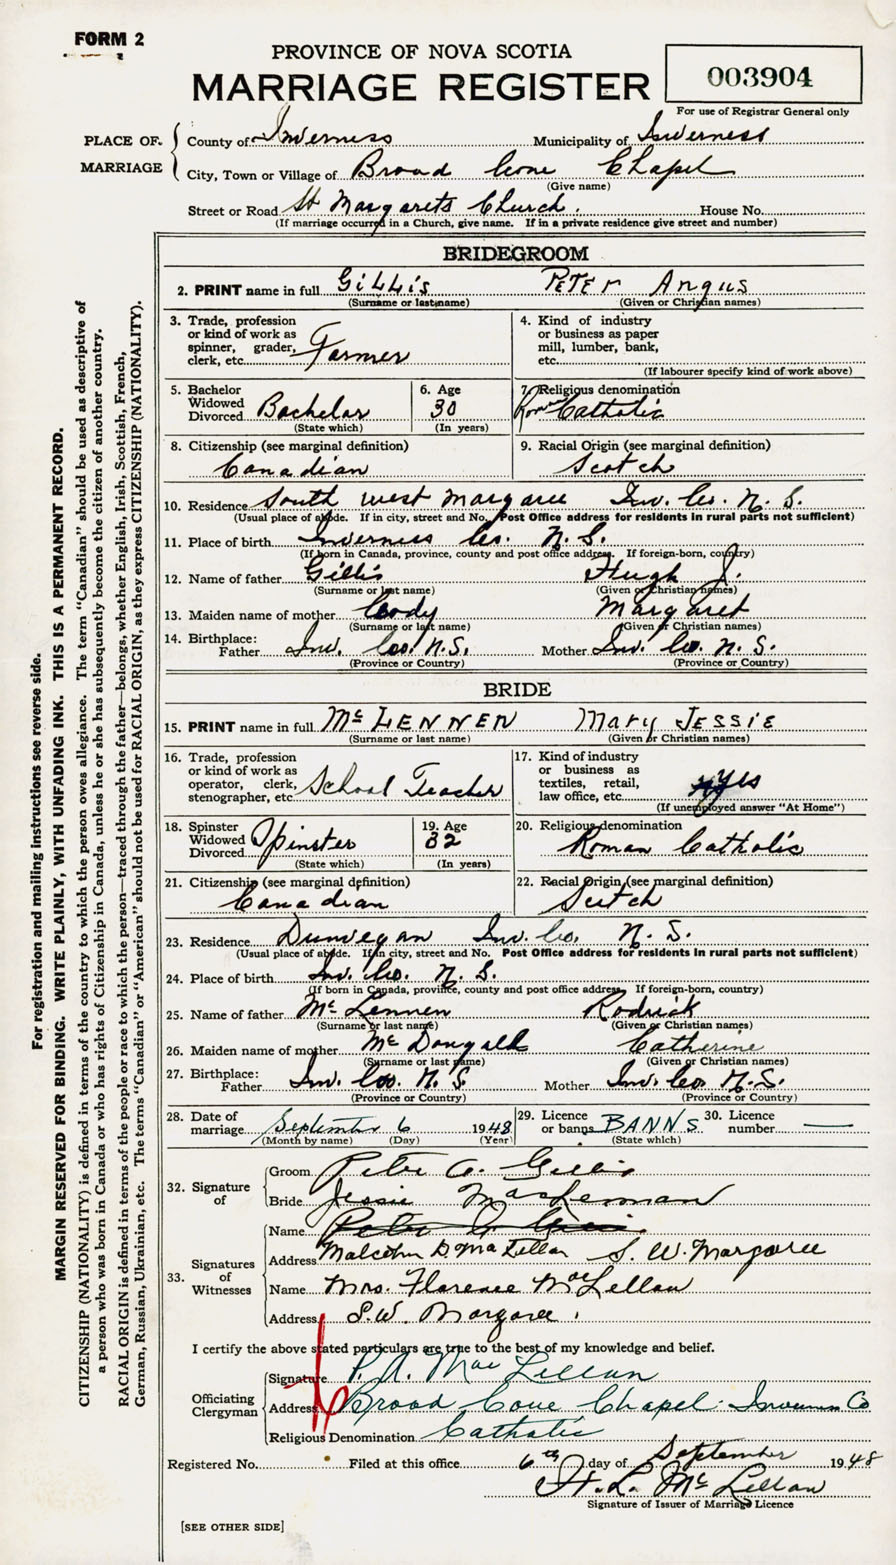 FORM 2
PROVINCE OF NOVA SCOTIA
MARRIAGE REGISTER
003904
For use of Registrar General only
PLACE OF MARRIAGE
County of Inverness Municipality of Inverness
City, Town or Village of Broad Cove Chapel
(Give name)
Street or Road St Margarets Church. House No.
(If marriage occurred in a Church, give name. If in a private residence give street and number)
BRIDEGROOM
2. PRINT name in full GILLIS PETEr Angus
(Surname or last name) (Given or Christian names)
3. Trade, profession or kind of work as spinner, grader, clerk, etc. Farmer
4. Kind of industry or business as paper mill, lumber, bank, etc.
(If labourer specify kind of work above)
5. Bachelor Widowed Divorced Bachelor
(State which)
6. Age 30
(In years)
7. Religious denomination Roman Catholic
8. Citizenship (see marginal definition) Canadian
9. Racial Origin (see marginal definition) Scotch
10. Residence South West Margaree Inv. Co. N. S.
(Usual place of abode. If in city, street and No. Post Office address for residents in rural parts not sufficient)
11. Place of birth Inverness Co. N. S.
(If born in Canada, province, county and post office address. If foreign-born, country)
12. Name of father Gillis Hugh J.
(Surname or last name) (Given or Christian names)
13. Maiden name of mother Coady Margaret
(Surname or last name) (Given or Christian names)
14. Birthplace: Father Inv. Co. N.S. Mother Inv. Co. N. S.
(Province or Country) (Province or Country)
BRIDE
15. PRINT name in full Mc LENNEN Mary JESSIE
(Surname or last name) (Given or Christian names)
16. Trade, profession or kind of work as operator, clerk, stenographer, etc. School Teacher
17. Kind of industry or business as textiles, retail, law office, etc. yes
(If unemployed answer "At Home")
18. Spinster Widowed Divorced Spinster
(State which)
19. Age 32
(In years)
20. Religious denomination Roman Catholic
21. Citizenship (see marginal definition) Canadian
22. Racial Origin (see marginal definition) Scotch
23. Residence Dunvegan Inv. Co. N. S.
(Usual place of abode. If in city, street and No. Post Office address for residents in rural parts not sufficient)
24. Place of birth Inv. Co. N. S.
(If born in Canada, province, county and post office address. If foreign-born, country)
25. Name of father Mc Lennen Rodrick
(Surname or last name) (Given or Christian names)
26. Maiden name of mother Mc Dougall Catherine
(Surname or last name) (Given or Christian names)
27. Birthplace: Father Inv. Co. N. S. Mother Inv. Co. N. S.
(Province or Country) (Province or Country)
28. Date of marriage September 6 1948
(Month by name) (Day) (Year)
29. Licence or banns BANNS
(State which)
30. Licence number —
32. Signature of
Groom Peter A. Gillis
Bride Jessie MacLennan
33. Signatures of Witnesses
Name
Address Malcolm D. MacLellan S. W. Margaree
Name Mrs. Florence MacLellan
Address S.W. Margaree.
I certify the above stated particulars are true to the best of my knowledge and belief.
Officiating Clergyman
Signature P. A. MacLellan
Address Broad Cove Chapel. Inverness Co
Religious Denomination Catholic
Registered No. Filed at this office 6th day of September 1948
Mc Lellan
Signature of Issuer of Marriage Licence
[SEE OTHER SIDE]
For registration and mailing instructions see reverse side.
MARGIN RESERVED FOR BINDING. WRITE PLAINLY, WITH UNFADING INK. THIS IS A PERMANENT RECORD.
CITIZENSHIP (NATIONALITY) is defined in terms of the country to which the person owes allegiance. The term "Canadian" should be used as descriptive of
a person who was born in Canada or who has rights of Citizenship in Canada, unless he or she has subsequently become the citizen of another country.
RACIAL ORIGIN is defined in terms of the people or race to which the person—traced through the father—belongs, whether English, Irish, Scottish, French,
German, Russian, Ukrainian, etc. The terms "Canadian" or "American" should not be used for RACIAL ORIGIN, as they express CITIZENSHIP (NATIONALITY).